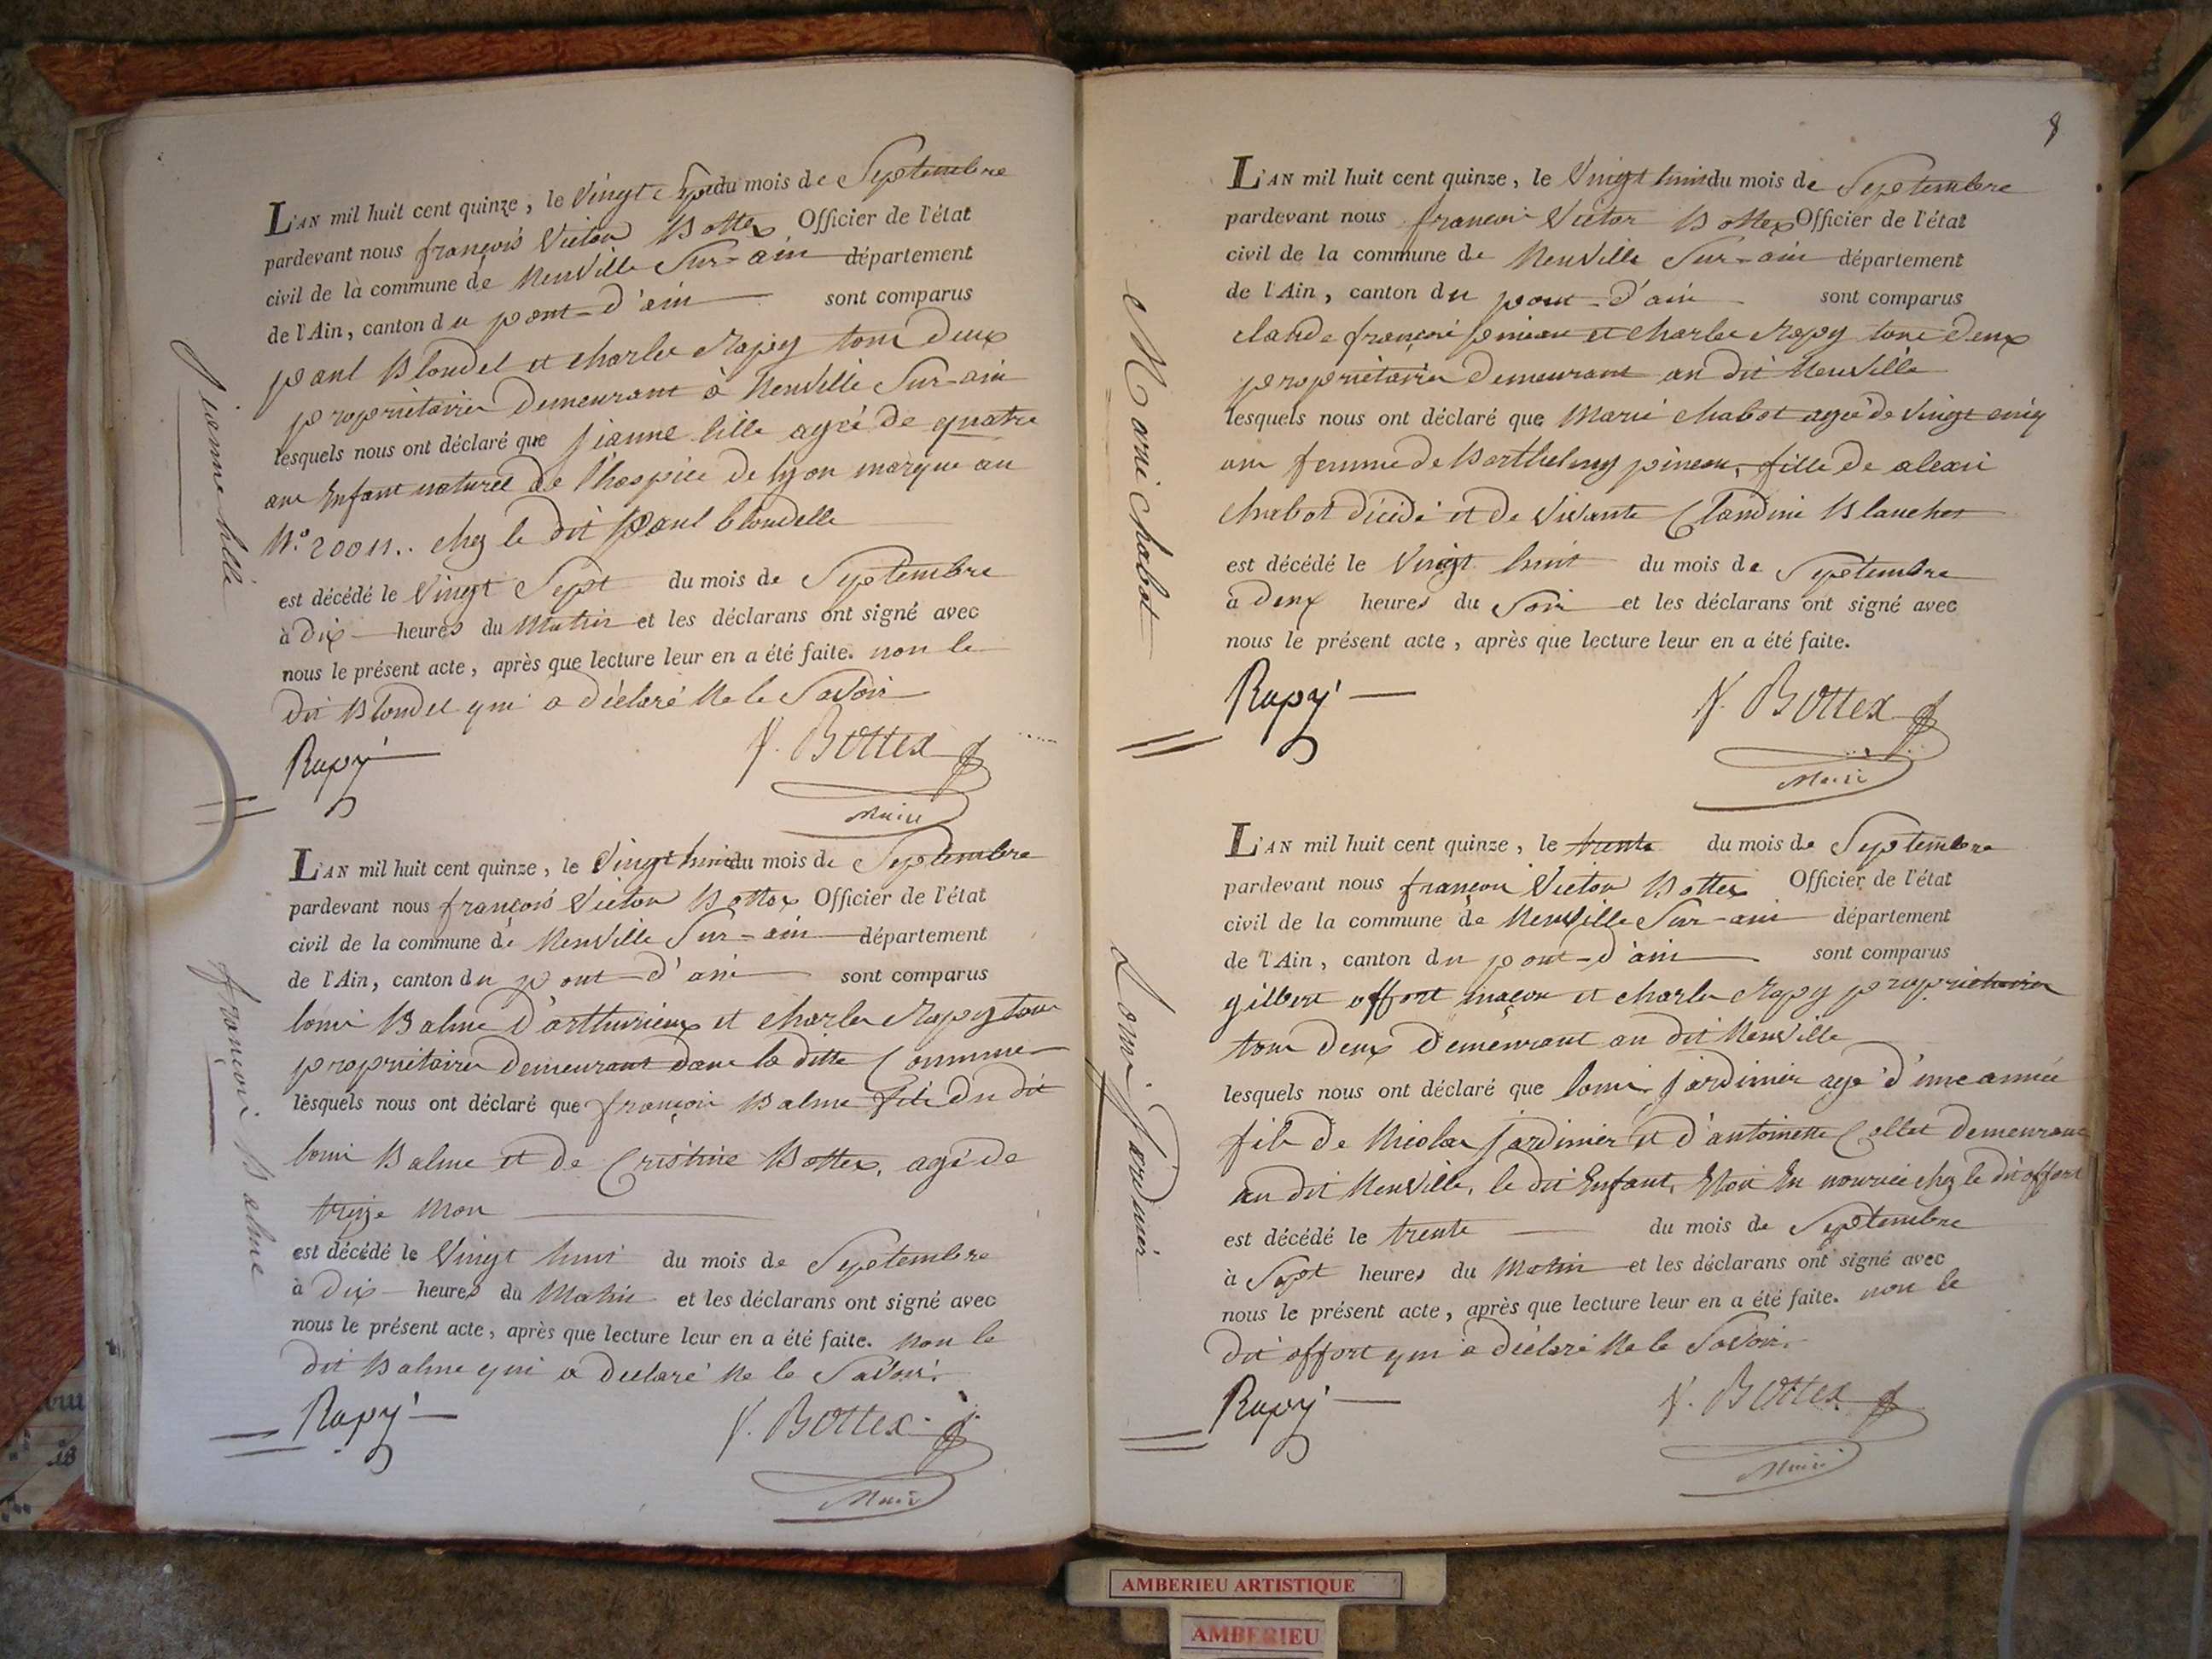 L'AN mil huit cent quinze, le Vingt Sept du mois de Septembre
pardevant nous françois Victor Bottex Officier de l'état
civil de la commune de Neuville Sur-ain département
de l'Ain, canton du pont-d'ain sont comparus
paul Blondel et charles Rapy tous deux
propriétaires demeurant à Neuville Sur-ain
lesquels nous ont déclaré que jeanne lille agée de quatre
ans Enfant naturel de l'hospice de lyon marque au
N.º 20011.. chez le dit paul blondelle
est décédé le Vingt Sept du mois de Septembre
à dix heures du Matin et les déclarans ont signé avec
nous le présent acte, après que lecture leur en a été faite. non le
dit Blondel qui a déclaré Ne le Savoir
Rapy
V. Bottex
Maire
jeanne lille
L'AN mil huit cent quinze, le Vingt huit du mois de Septembre
pardevant nous françois Victor Bottex Officier de l'état
civil de la commune de Neuville Sur-ain département
de l'Ain, canton du pont-d'ain sont comparus
louis Balme d'artturieux et charles Rapy tous
propriétaires demeurant dans la ditte Commune
lesquels nous ont déclaré que françois Balme fils du dit
louis Balme et de Cristine Bottex, agé de
treize mois
est décédé le Vingt huit du mois de Septembre
à Dix heures du Matin et les déclarans ont signé avec
nous le présent acte, après que lecture leur en a été faite. non le
dit Balme qui a declaré Ne le Savoir.
Rapy
V. Bottex
Maire
françois Balme
8
L'AN mil huit cent quinze, le Vingt huit du mois de Septembre
pardevant nous françois Victor Bottex Officier de l'état
civil de la commune de Neuville Sur-ain département
de l'Ain, canton du pont-d'ain sont comparus
claude françois pineau et charles Rapy tous deux
propriétaires demeurant au dit Neuville
lesquels nous ont déclaré que Marie chabot agée de Vingt cinq
ans femme de Barthelmy pineau, fille de alexis
chabot décédé et de Vivante Claudine Blanchet
est décédé le Vingt huit du mois de Septembre
à deux heures du Soir et les déclarans ont signé avec
nous le présent acte, après que lecture leur en a été faite.
Rapy
V. Bottex
Maire
Marie chabot
L'AN mil huit cent quinze, le trente du mois de Septembre
pardevant nous françois Victor Bottex Officier de l'état
civil de la commune de Neuville Sur-ain département
de l'Ain, canton du pont-d'ain sont comparus
gilbert offort maçon et charles Rapy propriétaires
tous deux demeurant au dit Neuville
lesquels nous ont déclaré que louis jardinier agé d'une année
fils de Nicolas jardinier et d'antoinette Collet demeurant
au dit Neuville, le dit Enfant, Etoit En nourrice chez le dit offort
est décédé le trente du mois de Septembre
à Sept heures du Matin et les déclarans ont signé avec
nous le présent acte, après que lecture leur en a été faite. non le
dit offort qui a déclaré Ne le Savoir.
Rapy
V. Bottex
Maire
Louis jardinier
AMBERIEU ARTISTIQUE
AMBERIEU